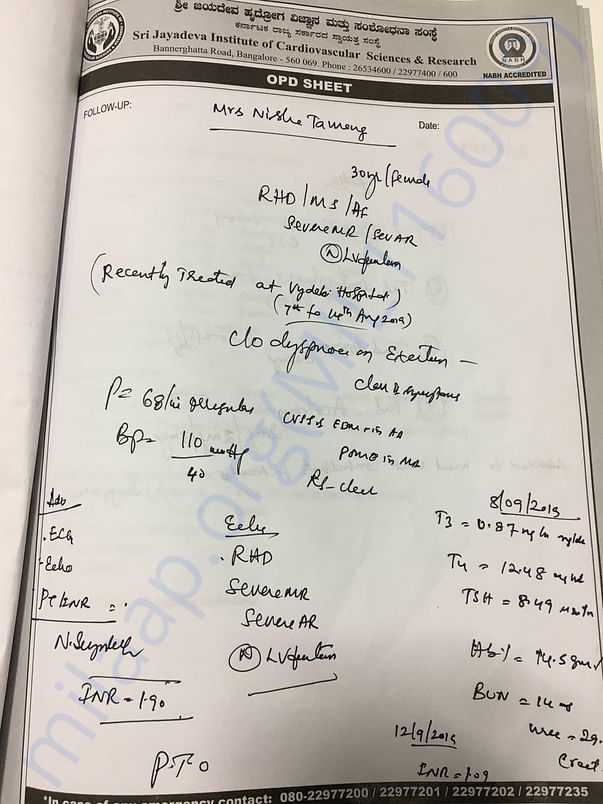 ಶ್ರೀ ಜಯದೇವ ಹೃದ್ರೋಗ ವಿಜ್ಞಾನ ಮತ್ತು ಸಂಶೋಧನಾ ಸಂಸ್ಥೆ
ಕರ್ನಾಟಕ ರಾಜ್ಯ ಸರ್ಕಾರದ ಸ್ವಾಯತ್ತ ಸಂಸ್ಥೆ
Sri Jayadeva Institute of Cardiovascular Sciences & Research
Bannerghatta Road, Bangalore - 560 069. Phone : 26534600 / 22977400 / 600
NABH
NABH ACCREDITED
OPD SHEET
FOLLOW-UP:
Mrs Nisha Tamang
Date:
30yr/female
RHD/MS/AF
Severe MR/Sev AR
(N) LV function
(Recently Treated at Vydehi Hospital)
(7th to 14th Aug 2019)
c/o dyspnoea on Exertion -
class II symptoms
P= 68/ irregular
BP= 110 mmHg
40
RS-clear
Adv
. ECG
- Echo
PT/INR =
INR = 1.90
P.T.O
Echo
. RHD
Severe MR
Severe AR
(N) LV function
8/09/2019
T3 = 0.87
T4 = 12.48
TSH = 8.49
Hb% = 14.5
BUN = 14
Urea = 29.
Creat
12/9/2019
INR = 1.09
*In case of any emergency contact: 080-22977200 / 22977201 / 22977202 / 22977235
milaap.org